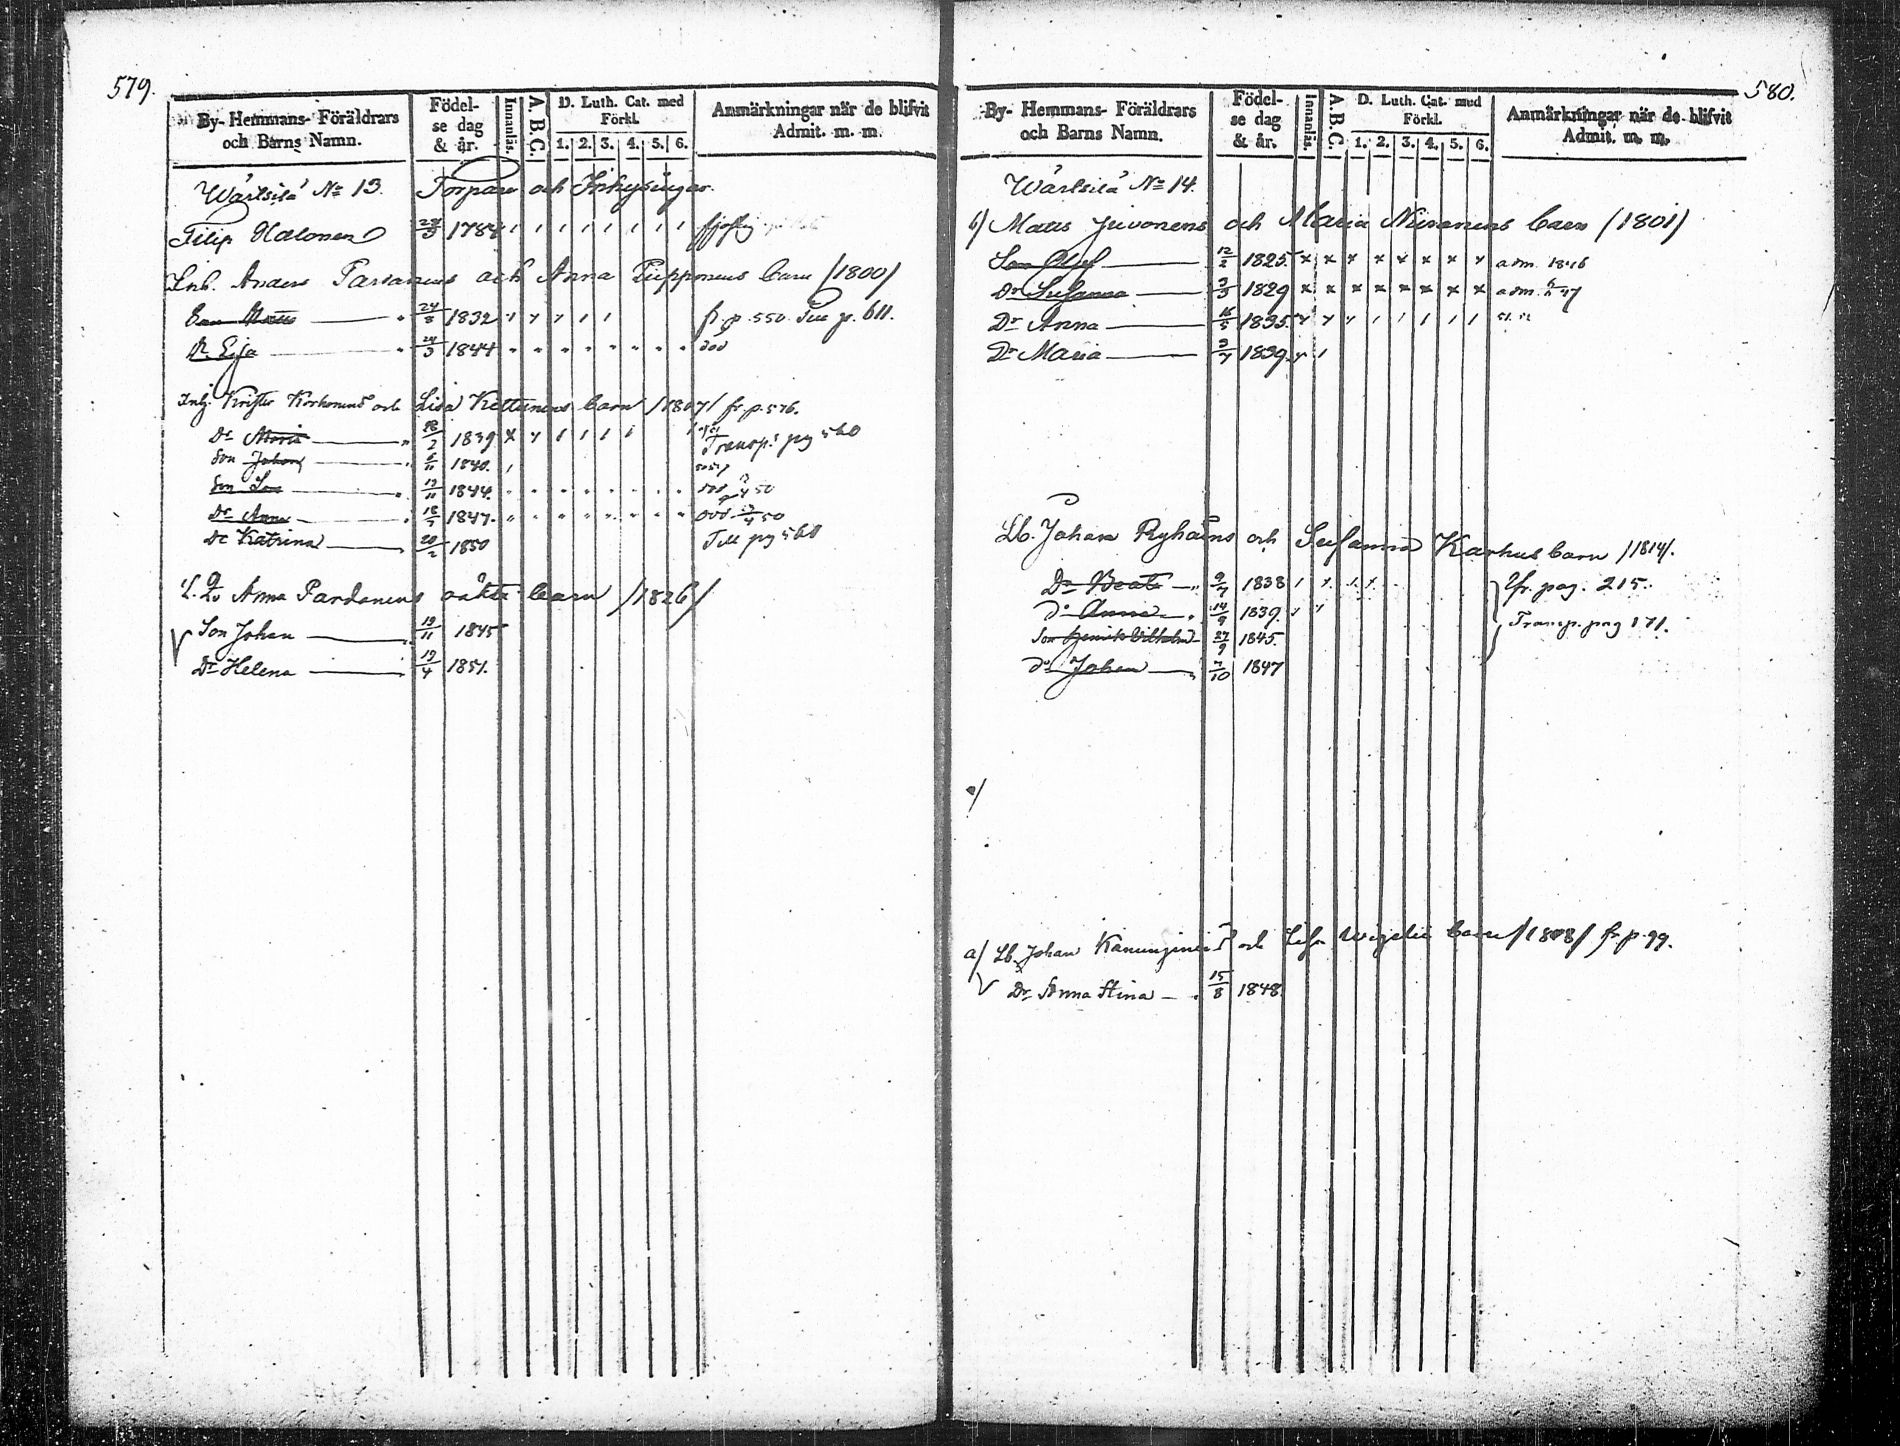 579.
By- Hemmans- Föräldrars och Barns Namn.
Födel- se dag & år.
Innanläs.
A.B.C.
D. Luth. Cat. med Förkl.
1. 2. 3. 4. 5. 6.
Anmärkningar när de blifvit Admit. m. m.
Wärtsilä No 13. Torpare och Inhysingar.
Filip Halonen 1784
Inh. Anders Parranens och Anna Piipponens barn /1800/
Son Matts 1832 fr. p. 550. Till p. 611.
Dr Eija 24/3 1844 död
Inh. Krister Korhonens och Lisa Kettunens barn /1807/ fr. p. 576.
Dr Maria 28/2 1839 Transp. pg 560
Son Johan 1840.
Son 13/11 1844. död 50
Dr Anna 18/5 1847. död 50
Dr Katrina 20/2 1850 Till pg 560
Anna Pardanens oäkta barn /1826/
Son Johan 19/11 1845
Dr Helena 19/4 1851.
580.
By- Hemmans- Föräldrars och Barns Namn.
Födel- se dag & år.
Innanläs.
A.B.C.
D. Luth. Cat. med Förkl.
1. 2. 3. 4. 5. 6.
Anmärkningar när de blifvit Admit. m. m.
Wärtsilä No 14.
b/ Matts Juvonens och Maria barn /1801/
Son Olof 12/2 1825 adm. 1846
Dr Susanna 3/3 1829 adm. 47
Dr Anna 1835
Dr Maria 3/7 1839
Lb. Johan Ryhäins och Susanna Karhus barn /1814/.
Dr Beata 9/7 1838 fr. pag. 215.
do Anna 14/9 1839. Transp. pag 171.
Son Henrik Wilhelm 27/9 1845.
do Johan 7/10 1847
a/ Lb. Johan och Lisa barn /1808/ fr p. 99.
Dr Anna Stina 15/8 1848.